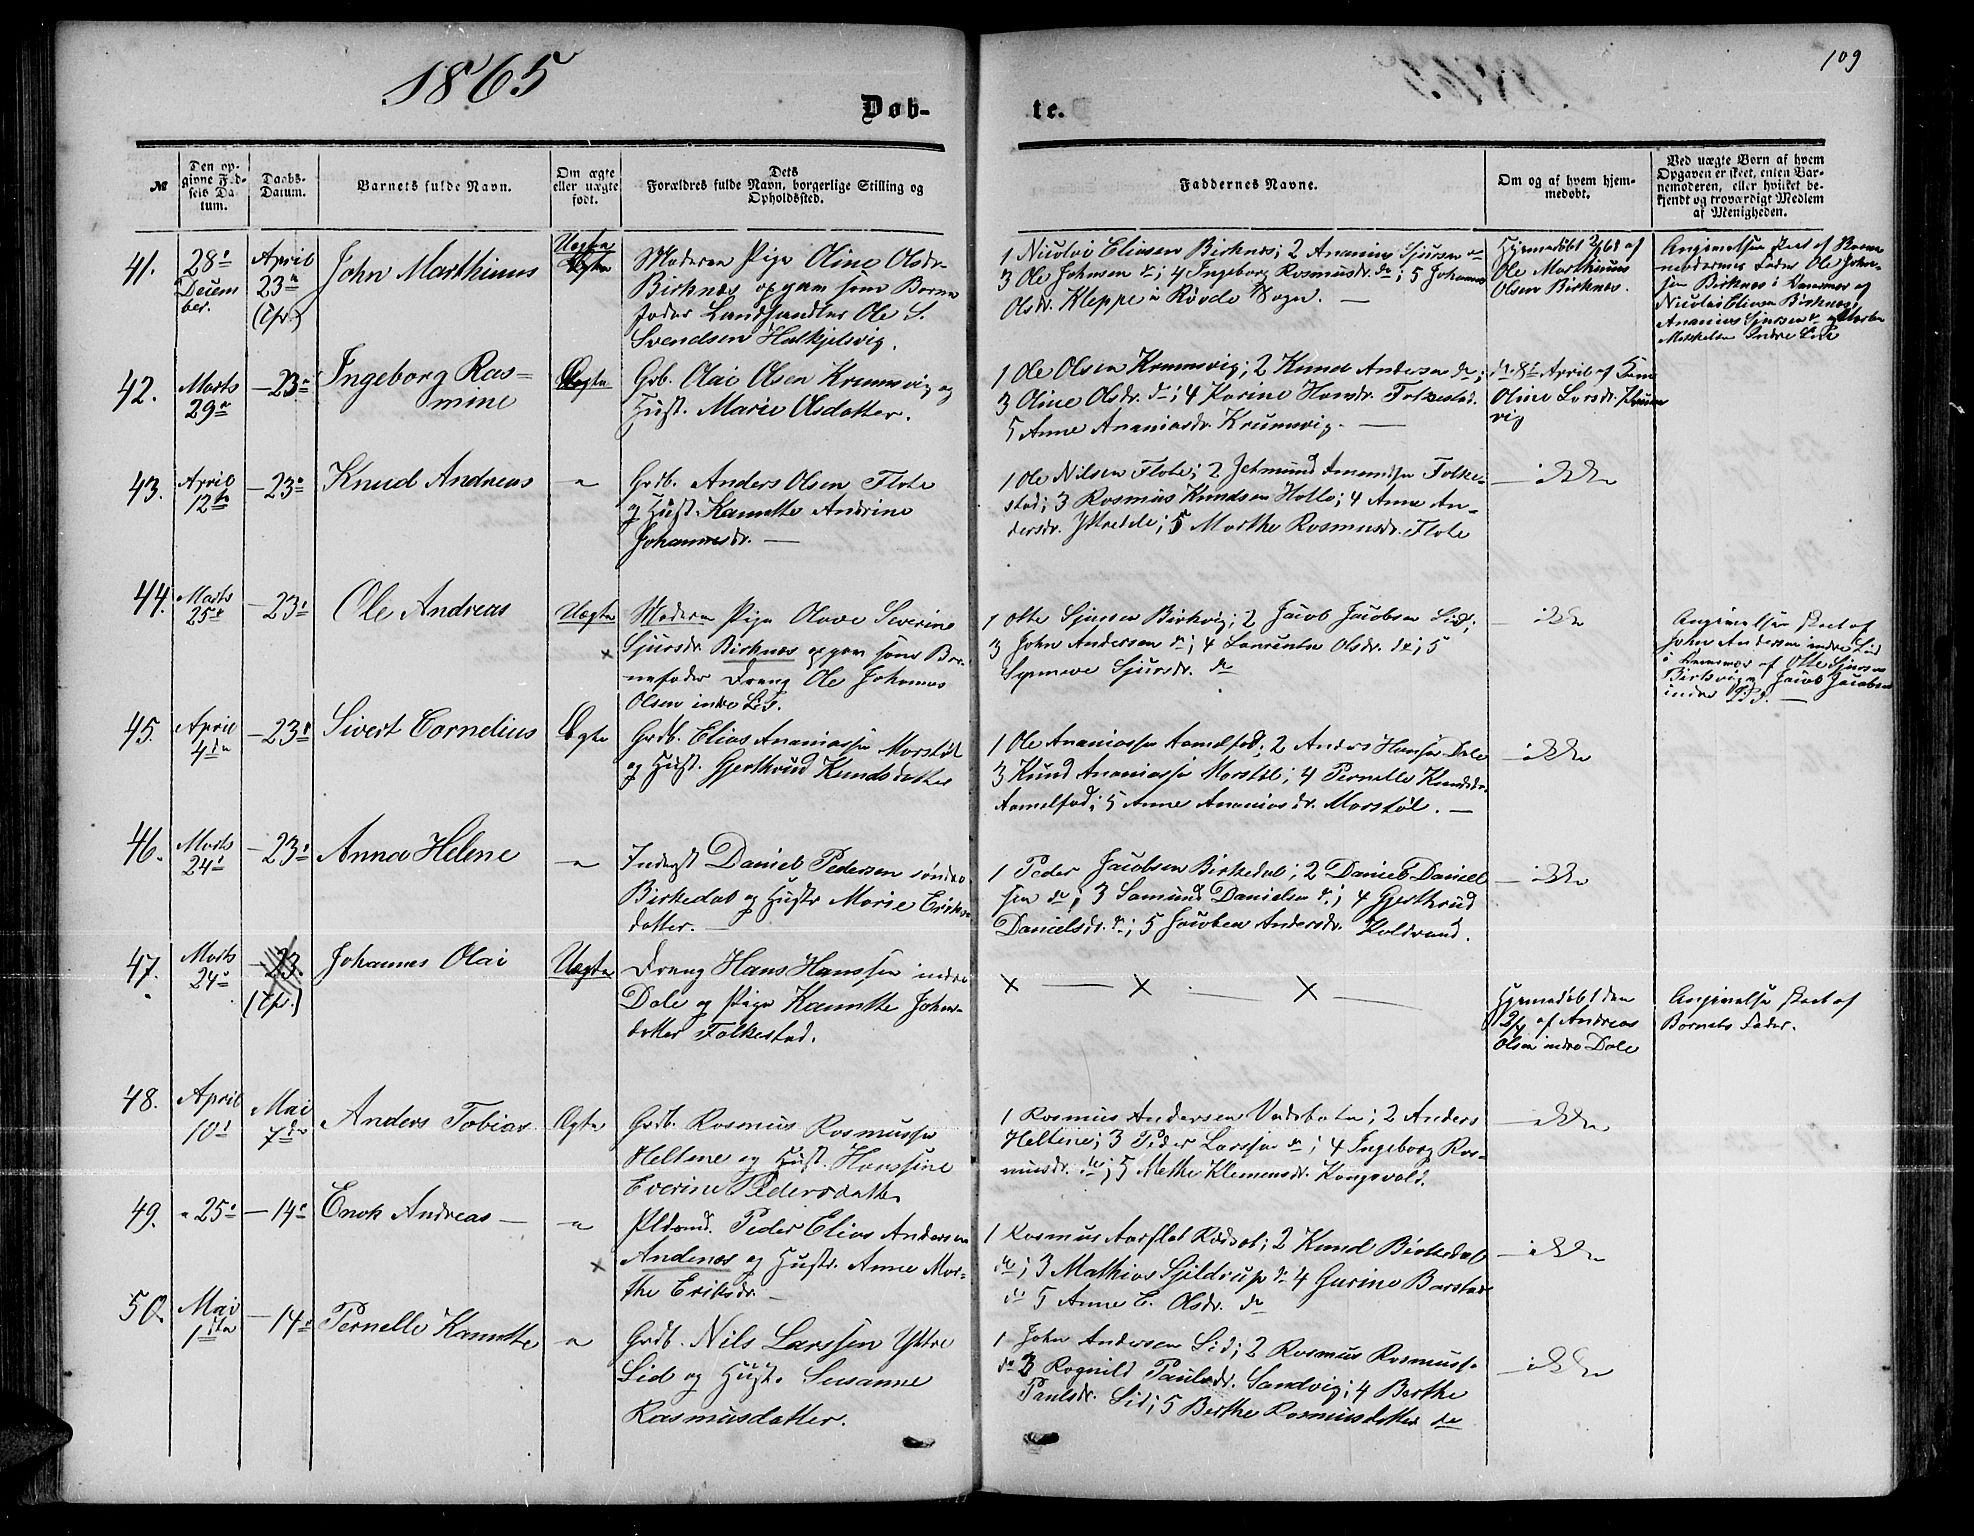 1865
109
Døb-
te.
№
Den op-
givne Fød-
sels Da-
tum.
Daabs-
Datum.
Barnets fulde Navn.
Om ægte
eller uægte
født.
Dets
Forældres fulde Navn, borgerlige Stilling og
Opholdssted.
Faddernes Navne.
Om og af hvem hjem-
medøbt.
Ved uægte Børn af hvem
Opgaven er skeet, enten Bar-
nemoderen, eller hvilket be-
kjendt og troværdigt Medlem
af Menigheden.
41.
28de
Decem
ber.
April
23de
John Marthinus
Uægte
Moderen Pige Oline Olsdr.
Birknæs opgav som Barne
fader Landhandler Ole S.
Svendsen Halkjelsvig.
1 Nicolai Eliasen Birknæs; 2 Ananias Sjursen do
3 Ole Johnsen do; 4 Ingeborg Rasmusdr. do; 5 Johanne
Olsdr. Kleppe i Røvde Sogn. —
Hjemmedøbt af
Ole Marthinus
Olsen Birknæs.
Angivelse skeet af Barne
moderens Fader Ole John-
sen Birknæs i
Nicolai Eliasen Birknæs,
Ananias Sjursen do og
Indre Lid
42.
Marts
29de
— 23de
Ingeborg Ras=
mine
Ægte
Grb. Olai Olsen Krumsvig og
Hust. Marie Olsdatter.
1 Ole Olsen Krumsvig; 2 Knud Andersen do;
3 Oline Olsdr. do; 4 Karine Hansdr. Folkestad.
5 Anne Ananiasdr. Krumsvig. —
8de April af
Oline Larsdr. Krum
vig
43.
April
12te
— 23de
Knud Andreas
"
Grdb. Anders Olsen Flote
og Hust. Kanutte Andrine
Johannesdr. —
1 Ole Nilsen Flote; 2 Jetmund Amundsen Folke-
stad; 3 Rasmus Knudsen Hatlø; 4 Anne An-
dersdr. Yttredle; 5 Marthe Rasmusdr. Flote
— ikke
44.
Marts
25de
— 23de
Ole Andreas
Uægte
Moderen Pige Olave Severine
× Sjursdr. Birknæs opgav som Bar-
nefader Dreng Ole Johannes
Olsen indre Lid.
1 Otte Sjursen Birkvig; 2 Jacob Jacobsen Lid;
3 John Andersen do; 4 Laurentse Olsdr. do; 5
Synneve Sjursdr. do
— ikke
Angivelse skeet af
John Andersen indre Lid
af Otte Sjursen
Birkvig og Jacob Jacobsen
indre Lid. —
45.
April
4de
— 23de
Sivert Cornelius
Ægte
Grdb. Elias Ananiassen Morstøl
og Hust. Gjerthrud Knudsdatter
1 Ole Ananiassen Aamelfod; 2 Anders Hansen Dale
3 Knud Ananiassen Morstøl; 4 Pernelle Knudsdr.
Aamelfod; 5 Anne Ananiasdr. Morstøl. —
— ikke
46.
Marts
24de
— 23de
Anna Helene
"
Inderst Daniel Pedersen søndre
Birkedal og Hustr. Marie Eriks-
datter. —
1 Peder Jacobsen Birkedal; 2 Daniel Daniel
sen do; 3 Samund Danielsen do; 4 Gjerthrud
Danielsdr. do; 5 Jacobea Andersdr. Koldvand.
— ikke
47.
Marts
24de
23
Johannes Olai
Uægte
Dreng Hans Hanssen indre
Dale og Pige Kanutte Johns-
datter Folkestad.
× — × — × —
Hjemmedøbt den
2/4 af Andreas
Olsen indre Dale
Angivelse skeet af
Barnets Fader.
48.
April
10de
Mai
7de
Anders Tobias
Ægte
Grdb. Rasmus Rasmussen
Heltene og Hust. Hanssine
Everine Pedersdatter
1 Rasmus Andersen; 2 Anders
Heltene; 3 Peder Larssen do; 4 Ingeborg Ras-
musdr. do; 5 Methe Klemensdr. Kongsvold.
— ikke
49.
" 25de
— 14de
Enok Andreas —
"
Pldsmd. Peder Elias Andersen
× Andenæs og Hustr. Anne Mar-
the Eriksdr. —
1 Rasmus Aarflot; 2 Knud Birkedal
do; 3 Mathias Gjildrup do 4 Gurine Barstad
do 5 Anne E. Olsdr. do
— ikke
50.
Mai
1ste
— 14de
Pernelle Kanutte
"
Grdb. Nils Larssen Yttre
Lid og Hust. Susanne
Rasmusdatter.
1 John Andersen Lid; 2 Rasmus Rasmuss.
do 3 Ragnild Paulsdr. Sandvig; 4 Berthe
Paulsdr. Lid; 5 Berthe Rasmusdatter do
— ikke